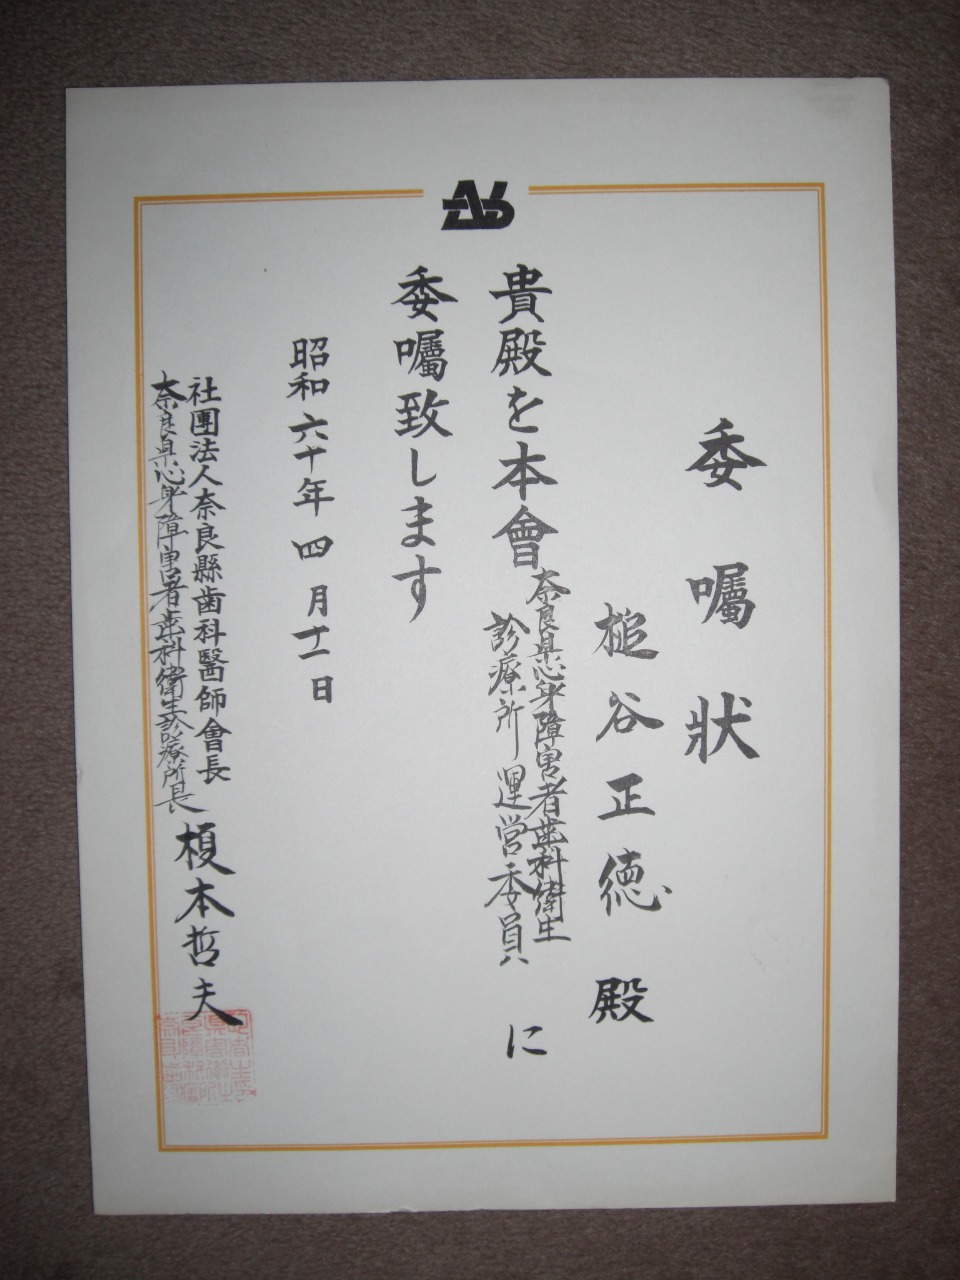 委嘱狀
槌谷正徳 殿
貴殿を本會奈良県心身障害者歯科衛生
診療所運営委員に
委嘱致します
昭和六十年四月十一日
社團法人奈良縣歯科醫師會長
奈良県心身障害者歯科衛生診療所長
榎本哲夫